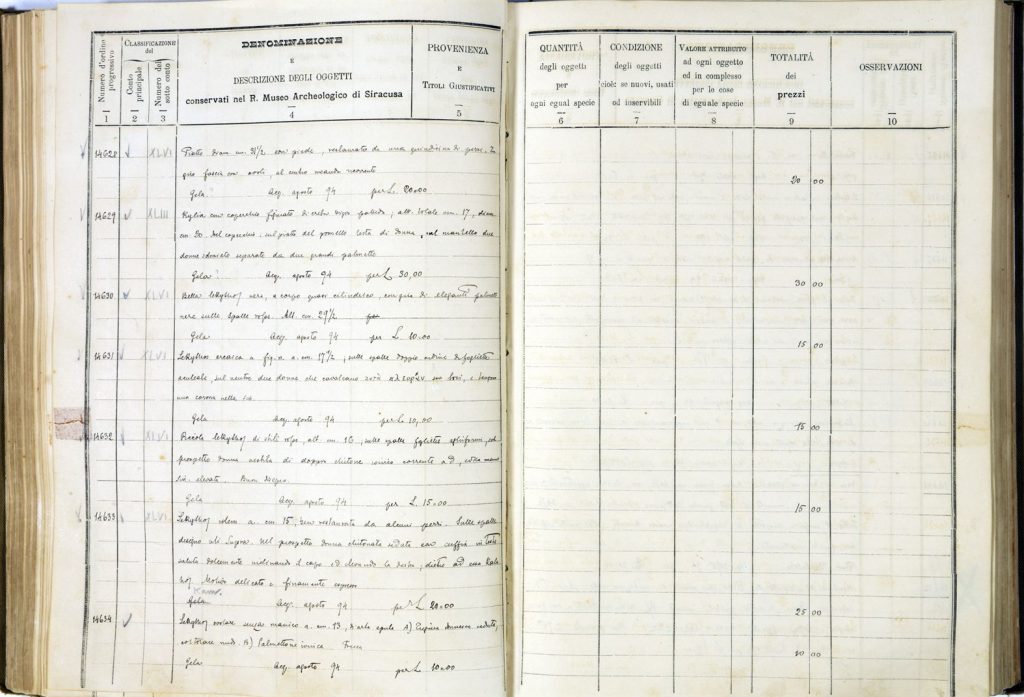 Numero d'ordine progressivo
CLASSIFICAZIONE del
Conto principale
Numero del sotto conto
DENOMINAZIONE
E
DESCRIZIONE DEGLI OGGETTI
conservati nel R. Museo Archeologico di Siracusa
PROVENIENZA
E
TITOLI GIUSTIFICATIVI
1 2 3 4 5
14628 XLVI Piatto diam. cm. 31½ con piede, restaurato da una quindicina di pezzi.
giro fascia con al centro meandro ricorrente
Gela? Acq. agosto 94 per L. 20.00
14629 XLIII Kylix con coperchio figurato alt. totale cm. 17, diam.
cm. 20. Nel coperchio, sul piatto del pomello testa di donna, nel mantello due
donne sdraiate separate da due grandi palmette
Gela? Acq. agosto 94 per L. 30,00
14630 XLVI Bella lekythos nera, a corpo quasi cilindrico, con giro di eleganti palmette
nere sulle spalle rosse. Alt. cm. 29½
Gela Acq. agosto 94 per L. 10.00
14631 XLVI Lekythos arcaica a fig. n. a. cm. 17½, sulle spalle doppio ordine di fogliette
sul ventre due donne che cavalcano su tori, e tengono
una corona nella
Gela Acq. agosto 94 per L. 10,00
14632 XLVI Piccola lekythos di stile rosso, alt. cm. 16, sulle spalle fogliette nel
prospetto donna vestita di doppio chitone ionico corrente a D,
sin. elevata. Buon disegno.
Gela Acq. agosto 94 per L. 15.00
14633 XLVI Lekythos idem a. cm. 15, restaurata da alcuni pezzi. Sulle spalle
disegno Nel prospetto donna chitonata seduta con cuffia in testa
saluta dolcemente inclinando il capo ed elevando la destra; dietro ad essa Kala
thos. Motivo delicato e finamente espresso
Gela Acq. agosto 94 per L. 20.00
14634 Lekythos senza manico a. cm. 13, A) Figura donnesca seduta,
B) Palmettone ionica
Gela Acq. agosto 94 per L. 10.00
QUANTITÀ
degli oggetti
per
ogni egual specie
CONDIZIONE
degli oggetti
cioè: se nuovi, usati
od inservibili
VALORE ATTRIBUITO
ad ogni oggetto
od in complesso
per le cose
di eguale specie
TOTALITÀ
dei
prezzi
OSSERVAZIONI
6 7 8 9 10
20 00
30 00
15 00
15 00
15 00
25 00
10 00